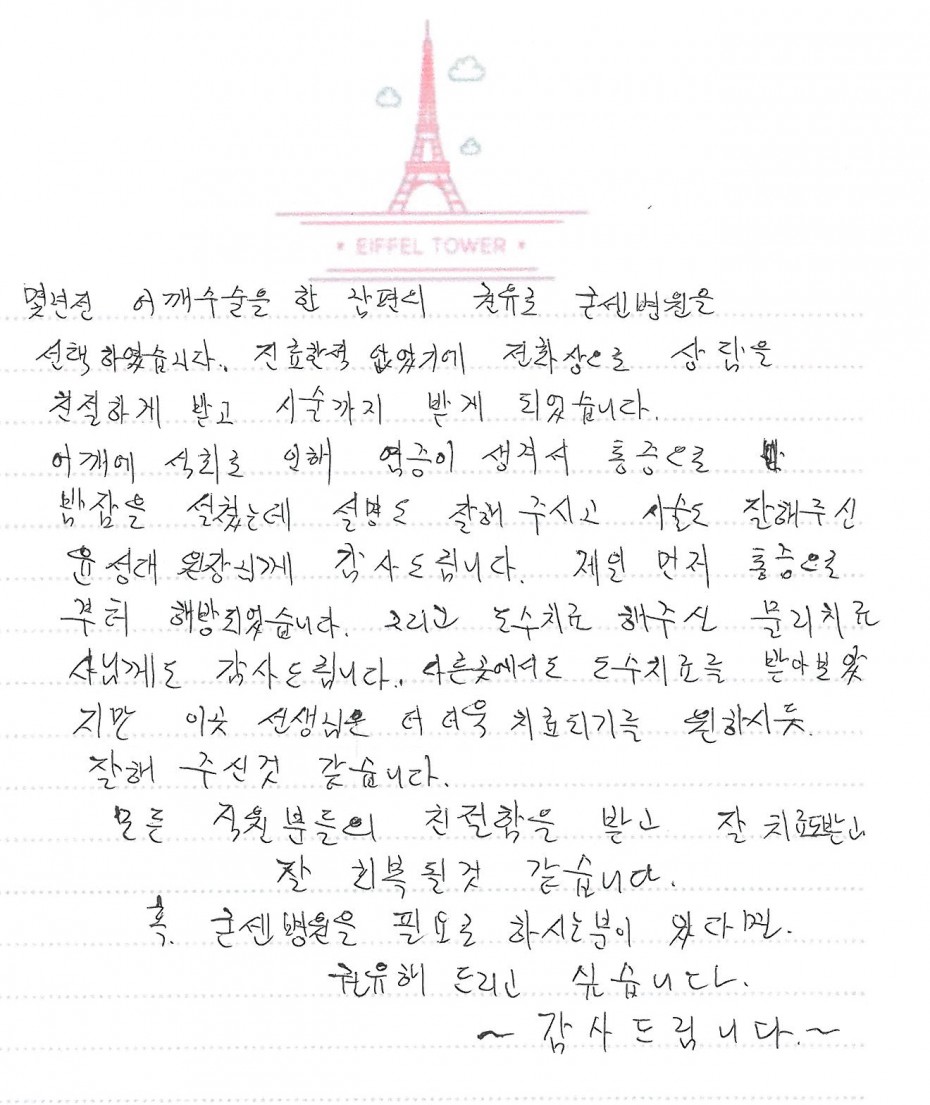 EIFFEL TOWER
몇년전 어깨수술을 한 남편의 권유로 굿센병원을
선택하였습니다. 진료한적 없었기에 전화상으로 상담을
친절하게 받고 시술까지 받게 되었습니다.
어깨에 석회로 인해 염증이 생겨서 통증으로
밤잠을 설쳤는데 설명도 잘해 주시고 시술도 잘해주신
윤성대 원장님께 감사드립니다. 제일 먼저 통증으로
부터 해방되었습니다. 그리고 도수치료 해주신 물리치료
사님께도 감사드립니다. 다른곳에서도 도수치료를 받아보았
지만 이곳 선생님은 더 더욱 치료되기를 원하시듯.
잘해 주신것 같습니다.
모든 직원분들의 친절함을 받고 잘 치료도받고
잘 회복될것 같습니다.
혹. 굿센병원을 필요로 하시는분이 있다면.
권유해 드리고 싶습니다.
~ 감사드립니다. ~